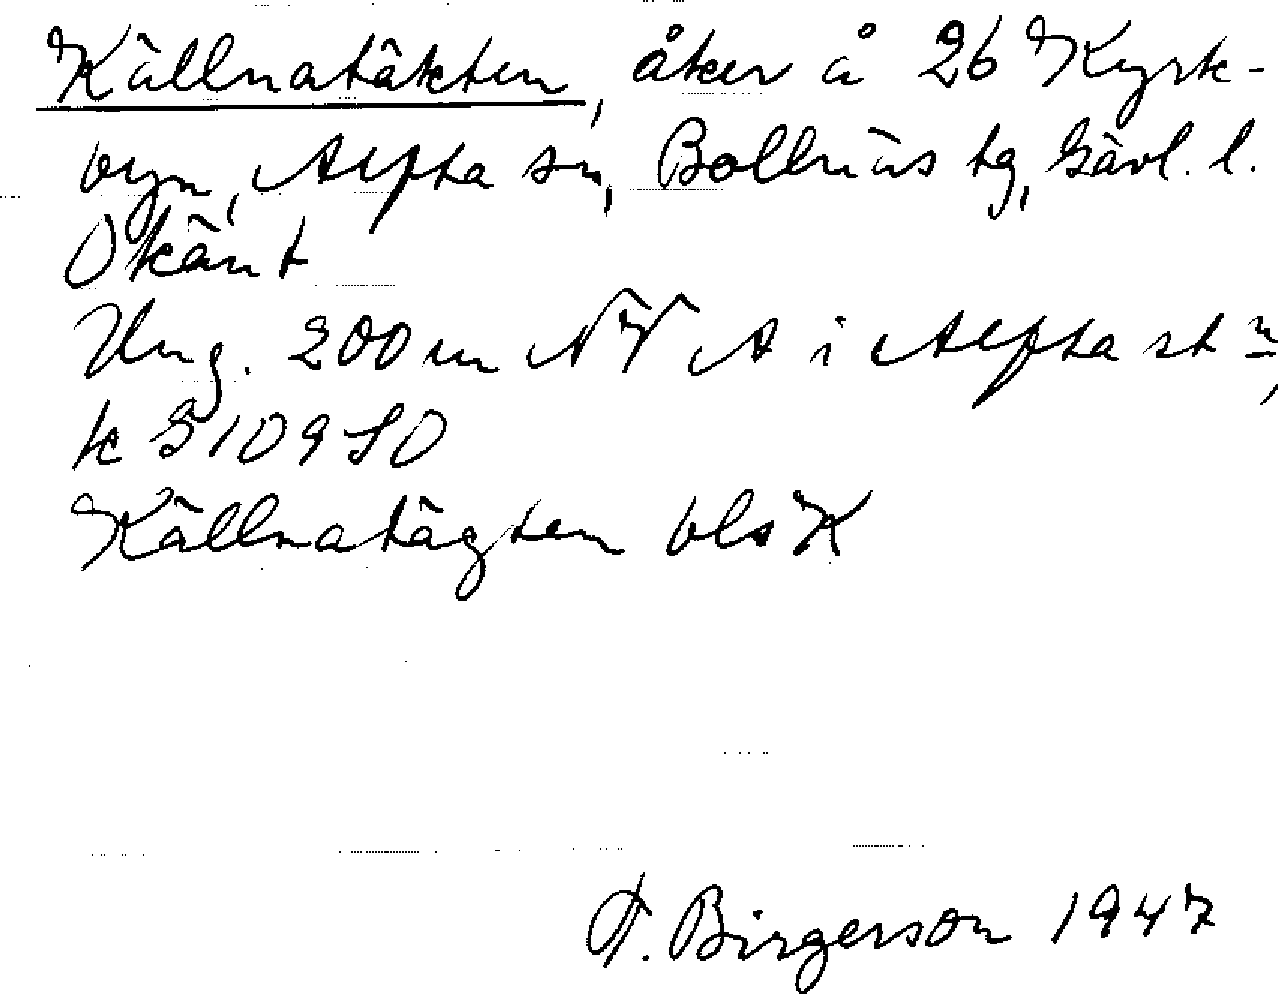 Källnatäkten, åker å 26 Kyrk-
byn, Alfta sn, Bollnäs tg, Gävl. l.
Okänt
Ung. 200 m NV A i Alfta st n,
k S 109 SO
Källnatägten bls K
F. Birgerson 1947